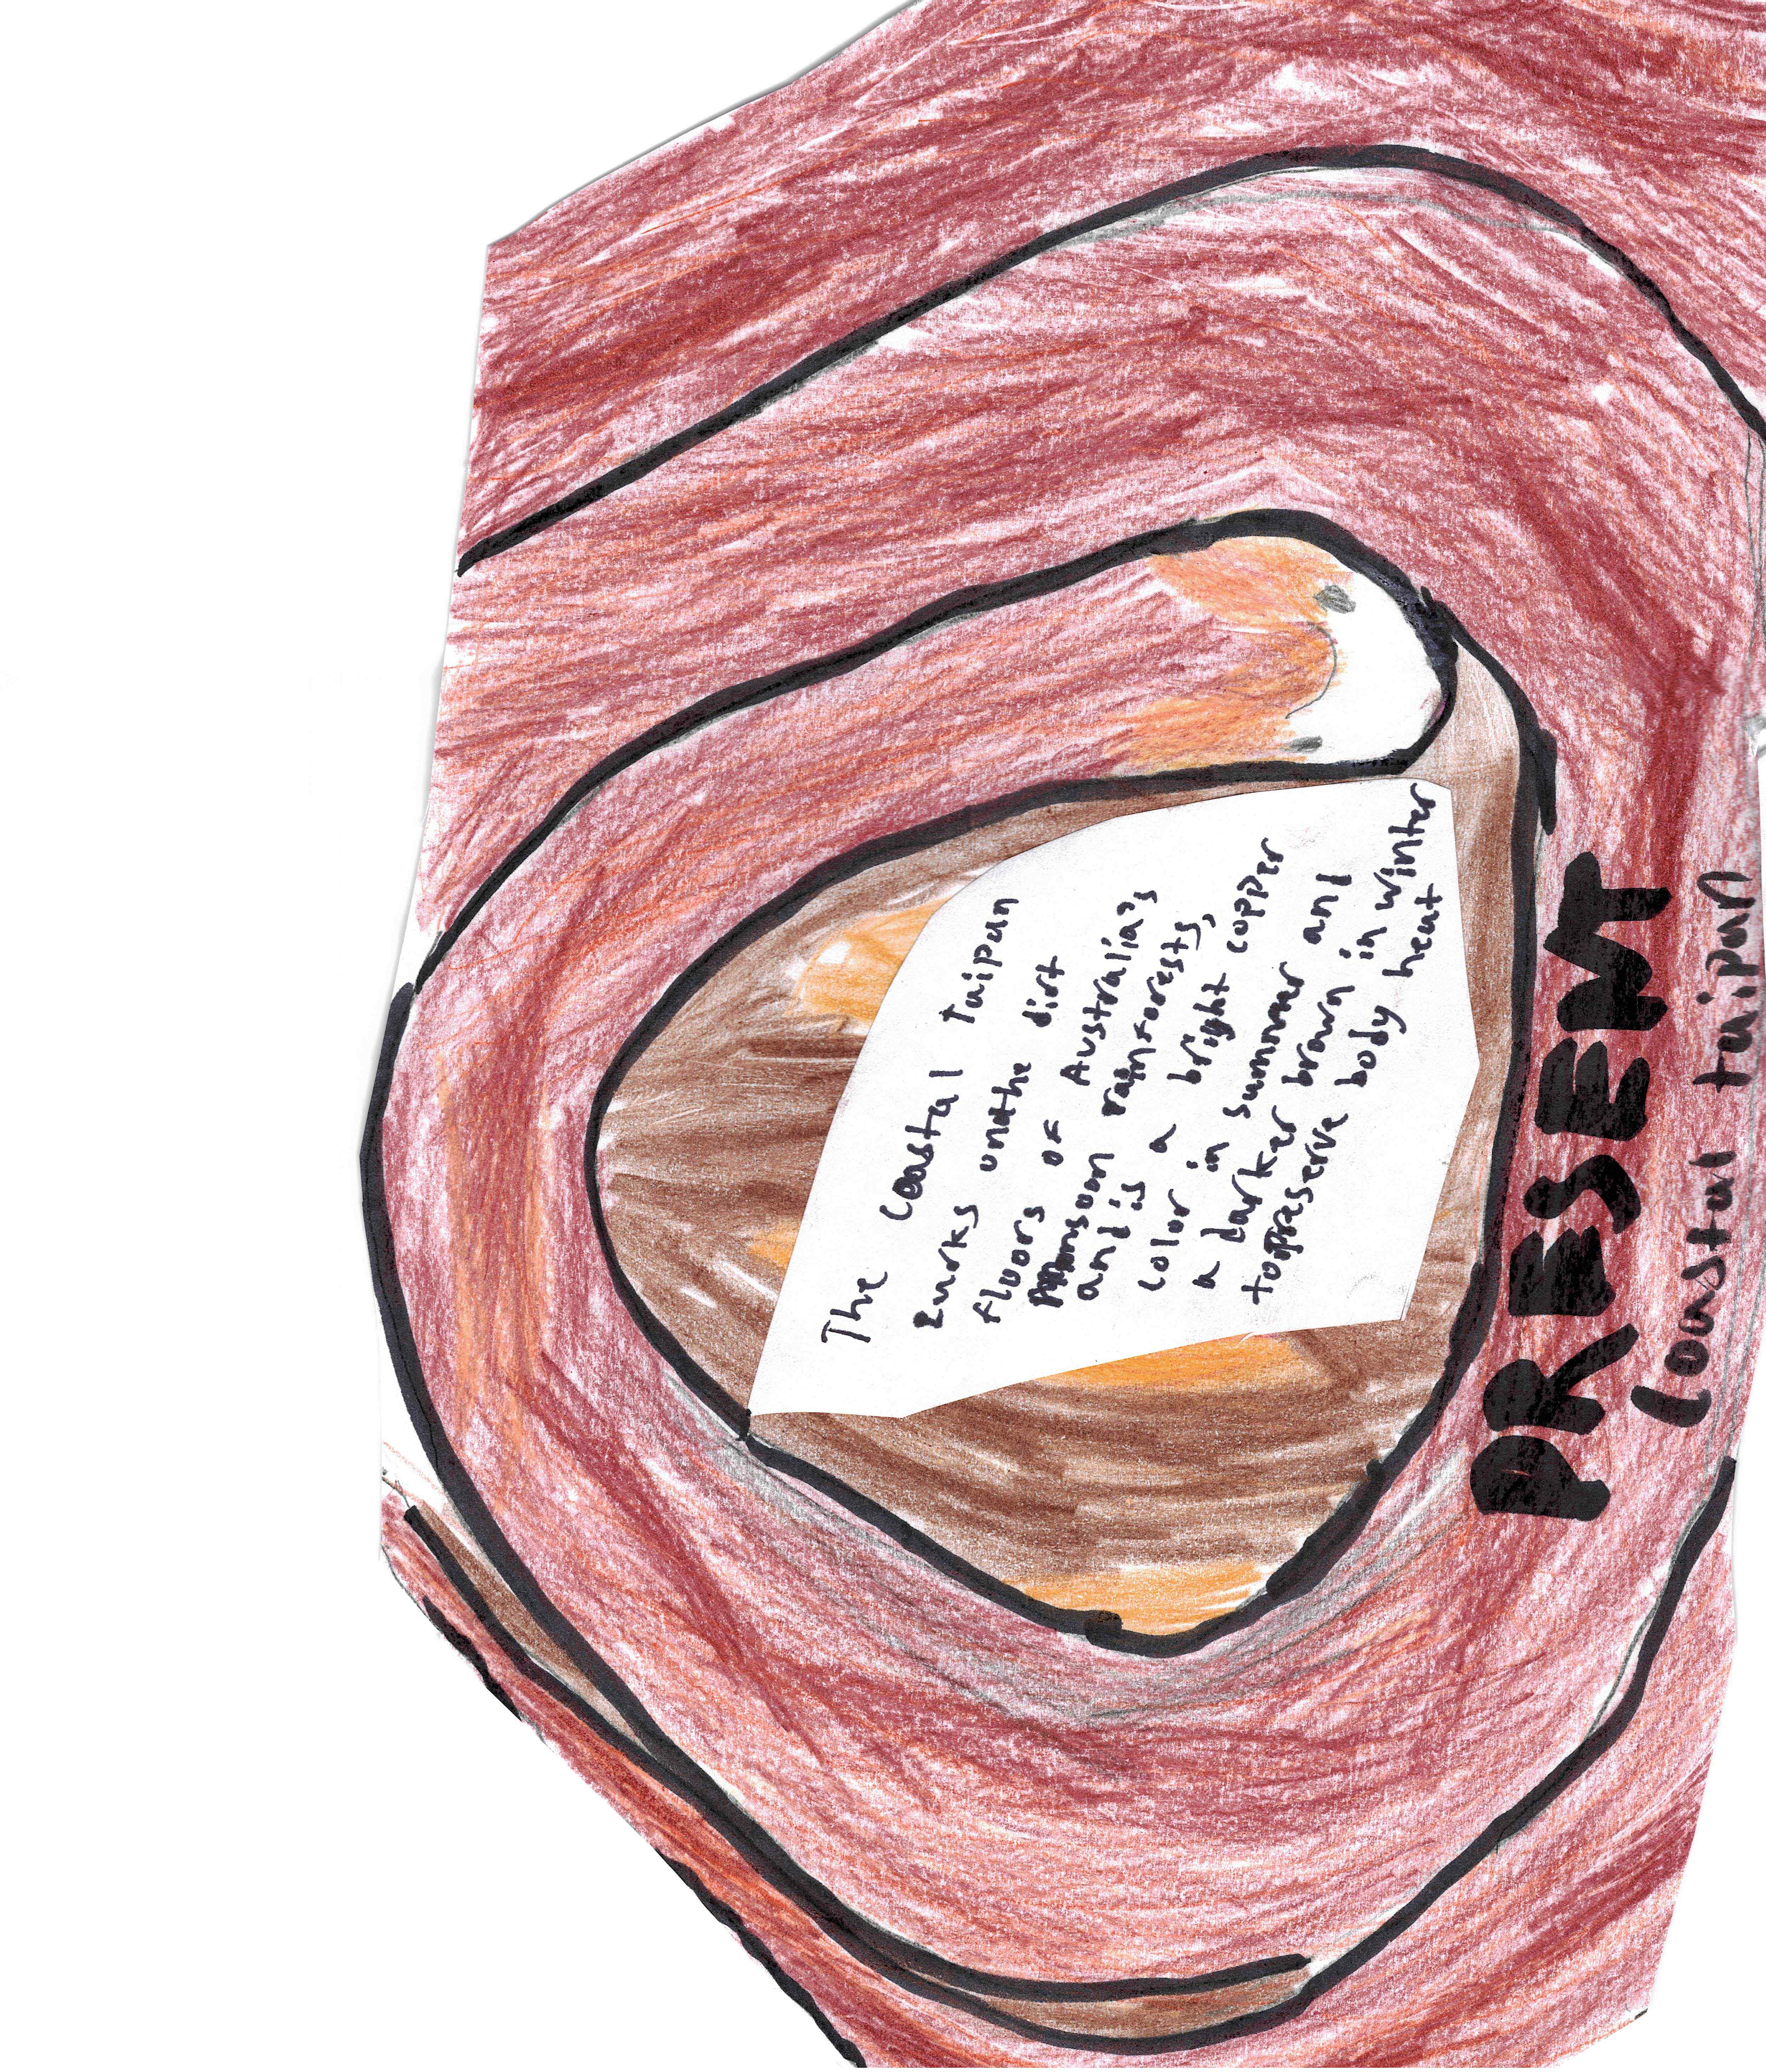 The coastal taipan
lurks onathe dirt
floors of Australia's
Monsoon rainforests,
and is a bright copper
color in summer and
a darker brown in winter
topreserve body heat
PRESENT
Coastal taipan